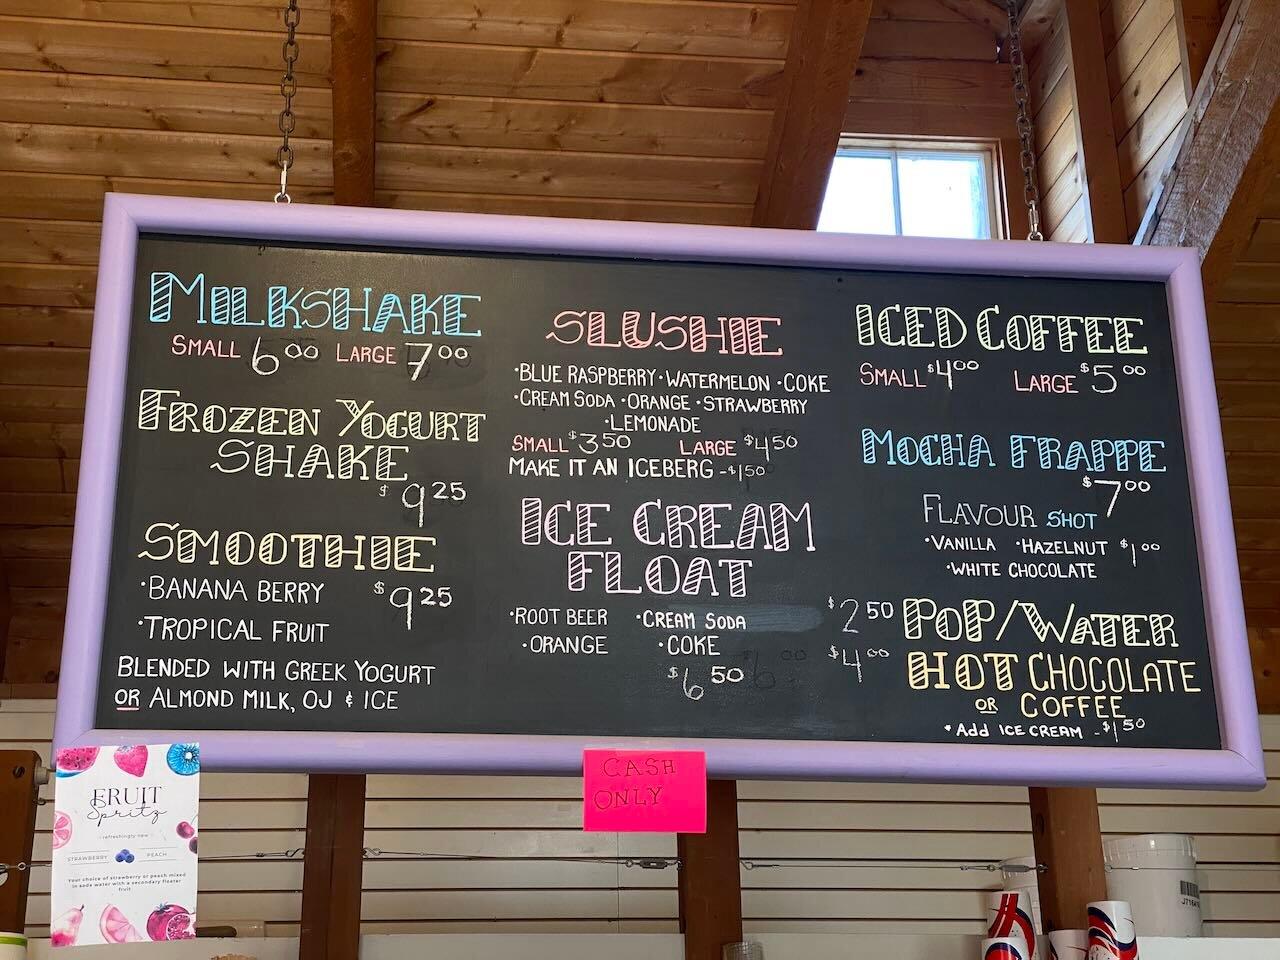 MILKSHAKE
SMALL 6.00 LARGE 7.00
FROZEN YOGURT
SHAKE
$9.25
SMOOTHIE
·BANANA BERRY $9.25
·TROPICAL FRUIT
BLENDED WITH GREEK YOGURT
OR ALMOND MILK, OJ & ICE
SLUSHIE
·BLUE RASPBERRY ·WATERMELON ·COKE
·CREAM SODA ·ORANGE ·STRAWBERRY
·LEMONADE
SMALL $3.50 LARGE $4.50
MAKE IT AN ICEBERG -$1.50
ICE CREAM
FLOAT
·ROOT BEER ·CREAM SODA
·ORANGE ·COKE
$6.50
ICED COFFEE
SMALL $4.00 LARGE $5.00
MOCHA FRAPPE
$7.00
FLAVOUR SHOT
·VANILLA ·HAZELNUT $1.00
·WHITE CHOCOLATE
$2.50 POP/WATER
$4.00 HOT CHOCOLATE
OR COFFEE
* Add ICE CREAM -$1.50
CASH
ONLY
FRUIT
Spritz
- refreshingly new -
STRAWBERRY PEACH
Your choice of strawberry or peach mixed
in soda water with a secondary floater
fruit